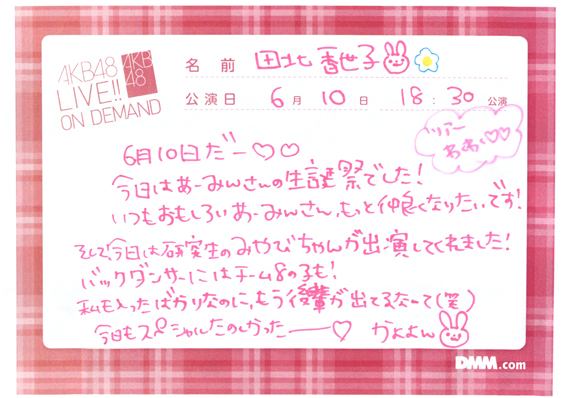 AKB48
LIVE!!
ON DEMAND
AKB
48
名前 田北香世子
公演日 6月10日 18:30公演
ツアー
6月10日だー♡♡
今日はあーみんさんの生誕祭でした!
いつもおもしろいあーみんさん、もっと仲良くなりたいです!
そして今日は研究生のみやびちゃんが出演してくれました!
バックダンサーにはチーム8の子も!
私も入ったばかりなのに、もう後輩が出てるなんて(笑)
今日もスペシャルたのしかったーー♡ かよよん
DMM.com